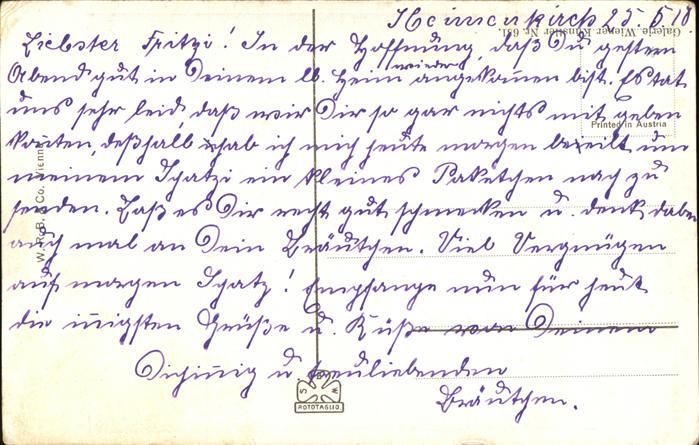 Heimenkirch 25. 5. 18.
Galerie Wiener Künstler Nr. 681
Liebster Fritzi! In der Hoffnung, daß Du gestern
Abend gut in Deinem lb. Heim wieder angekommen bist. Es tat
uns sehr leid daß wir Dir so gar nichts mit geben
konnten, deßhalb hab ich mich heute morgen beeilt um
Printed in Austria
meinem Schatzi ein kleines Paketchen nach zu
senden. Laß es Dir recht gut schmecken u. denk dabei
auch mal an Dein Bräutchen. Viel Vergnügen
auf morgen Schatz! Empfange nun für heut
die innigsten Grüße u. Küße von Deinem
Dichinnig u treuliebenden
Bräutchen.
W. R. B. & Co. Vienne
S B W
ROTOTAGLIO.